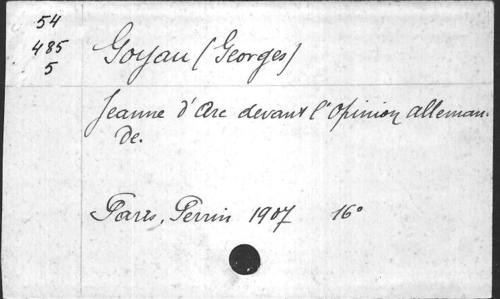 54
485
5
Goyau (Georges)
Jeanne d'Arc devant l'Opinion alleman-
de.
Paris, Perrin 1907 16°